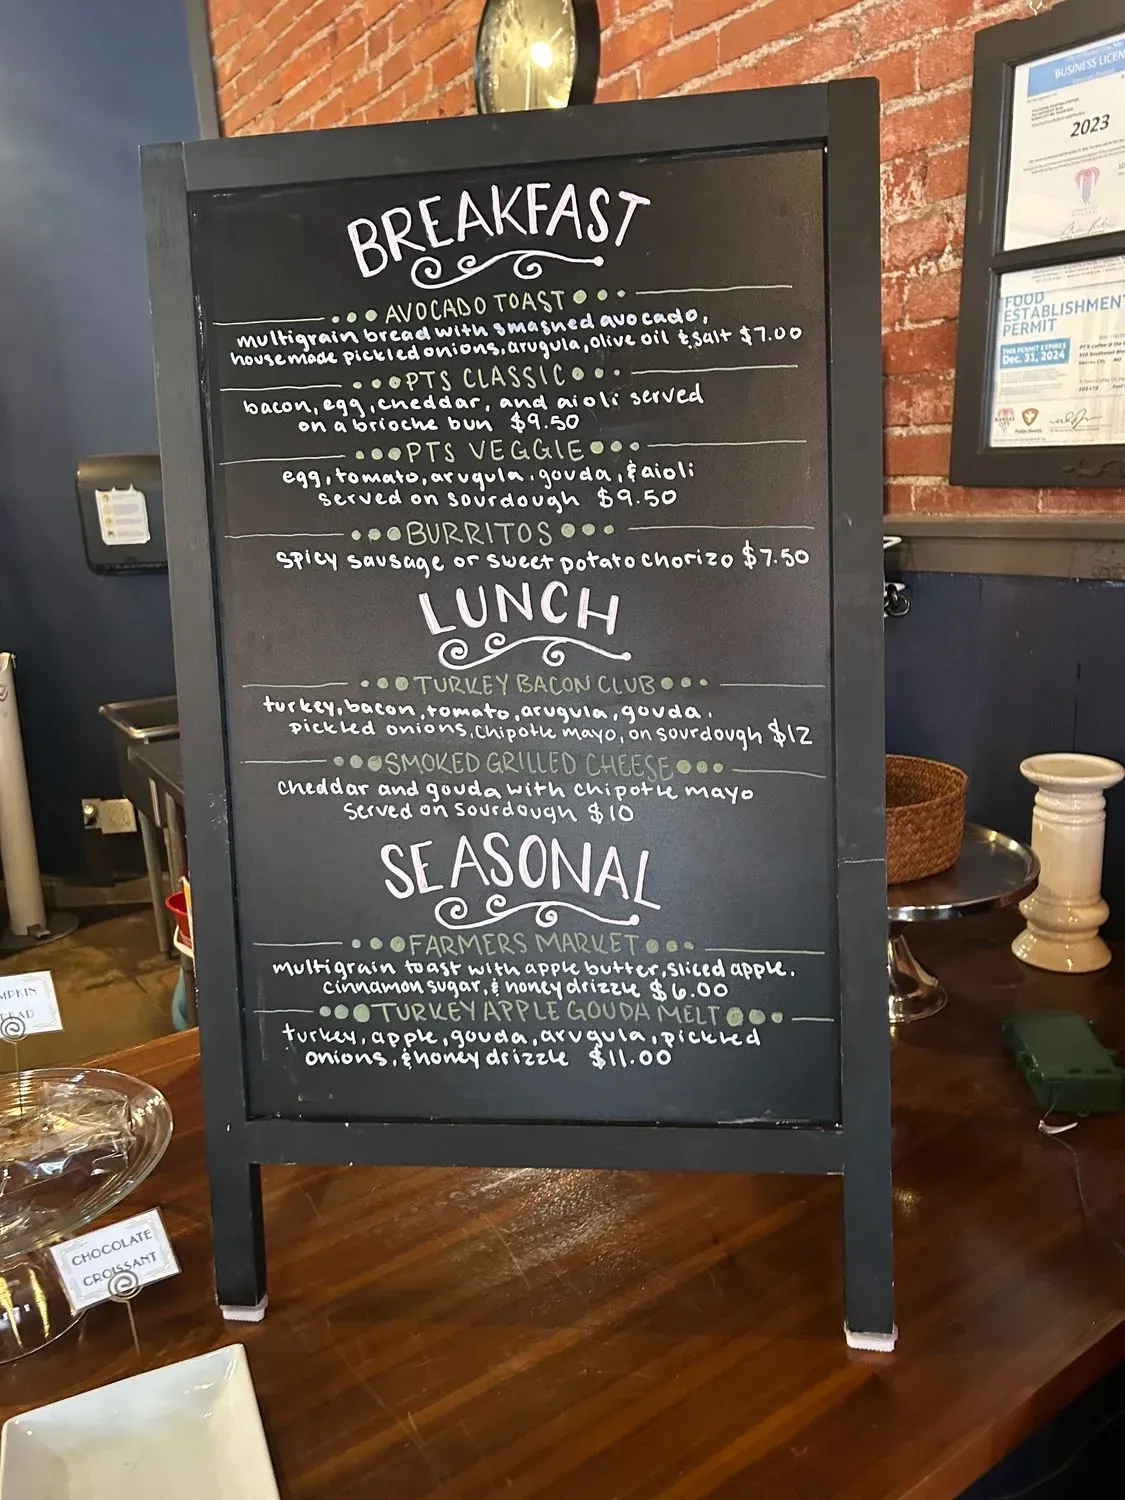 BREAKFAST
AVOCADO TOAST
multigrain bread with smashed avocado,
housemade pickled onions, arugula, olive oil & salt $7.00
PTS CLASSIC
bacon, egg, cheddar, and aioli served
on a brioche bun $9.50
PTS VEGGIE
egg, tomato, arugula, gouda, & aioli
served on sourdough $9.50
BURRITOS
spicy sausage or sweet potato chorizo $7.50
LUNCH
TURKEY BACON CLUB
turkey, bacon, tomato, arugula, gouda,
pickled onions, chipotle mayo, on sourdough $12
SMOKED GRILLED CHEESE
cheddar and gouda with chipotle mayo
served on sourdough $10
SEASONAL
FARMERS MARKET
multigrain toast with apple butter, sliced apple,
cinnamon sugar, & honey drizzle $6.00
TURKEY APPLE GOUDA MELT
turkey, apple, gouda, arugula, pickled
onions, & honey drizzle $11.00
BUSINESS LICEN
2023
FOOD
ESTABLISHMENT
PERMIT
THIS PERMIT EXPIRES
Dec. 31, 2024
CHOCOLATE
CROISSANT